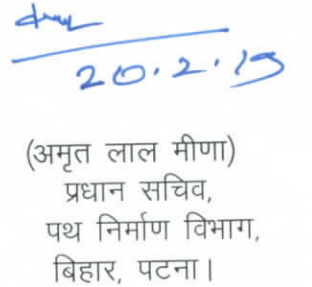 20.2.19
(अमृत लाल मीणा)
प्रधान सचिव,
पथ निर्माण विभाग,
बिहार, पटना।